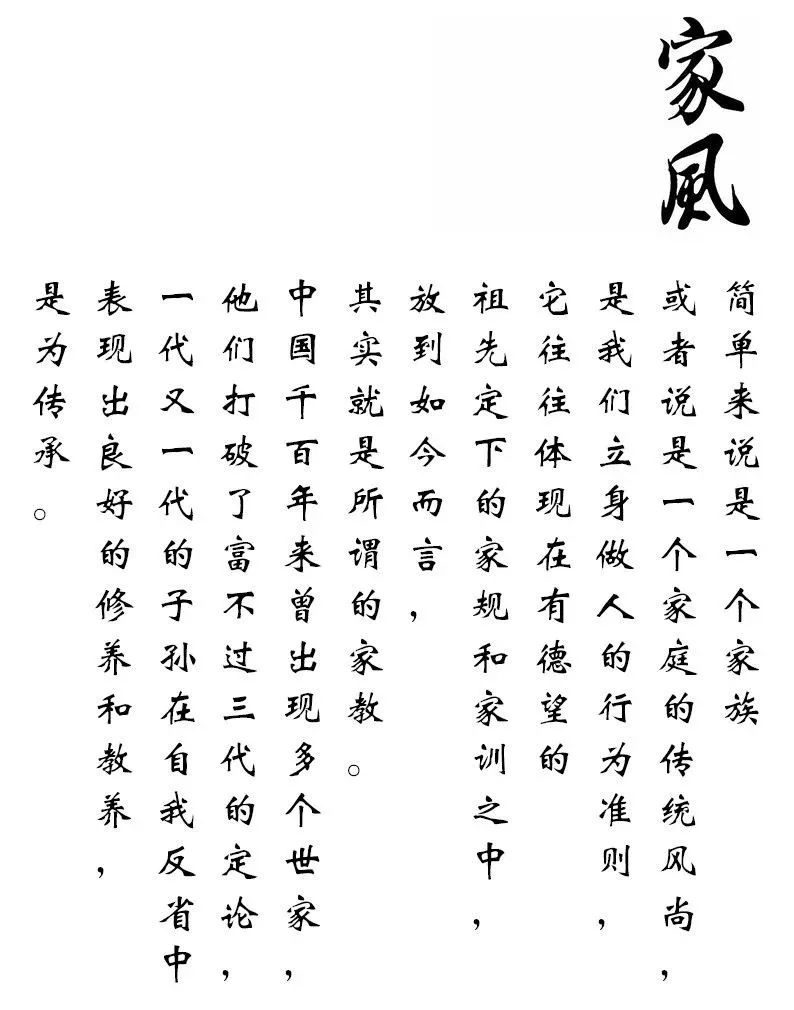 家風
简单来说是一个家族
或者说是一个家庭的传统风尚，
是我们立身做人的行为准则，
它往往体现在有德望的
祖先定下的家规和家训之中，
放到如今而言，
其实就是所谓的家教。
中国千百年来曾出现多个世家，
他们打破了富不过三代的定论，
一代又一代的子孙在自我反省中
表现出良好的修养和教养，
是为传承。